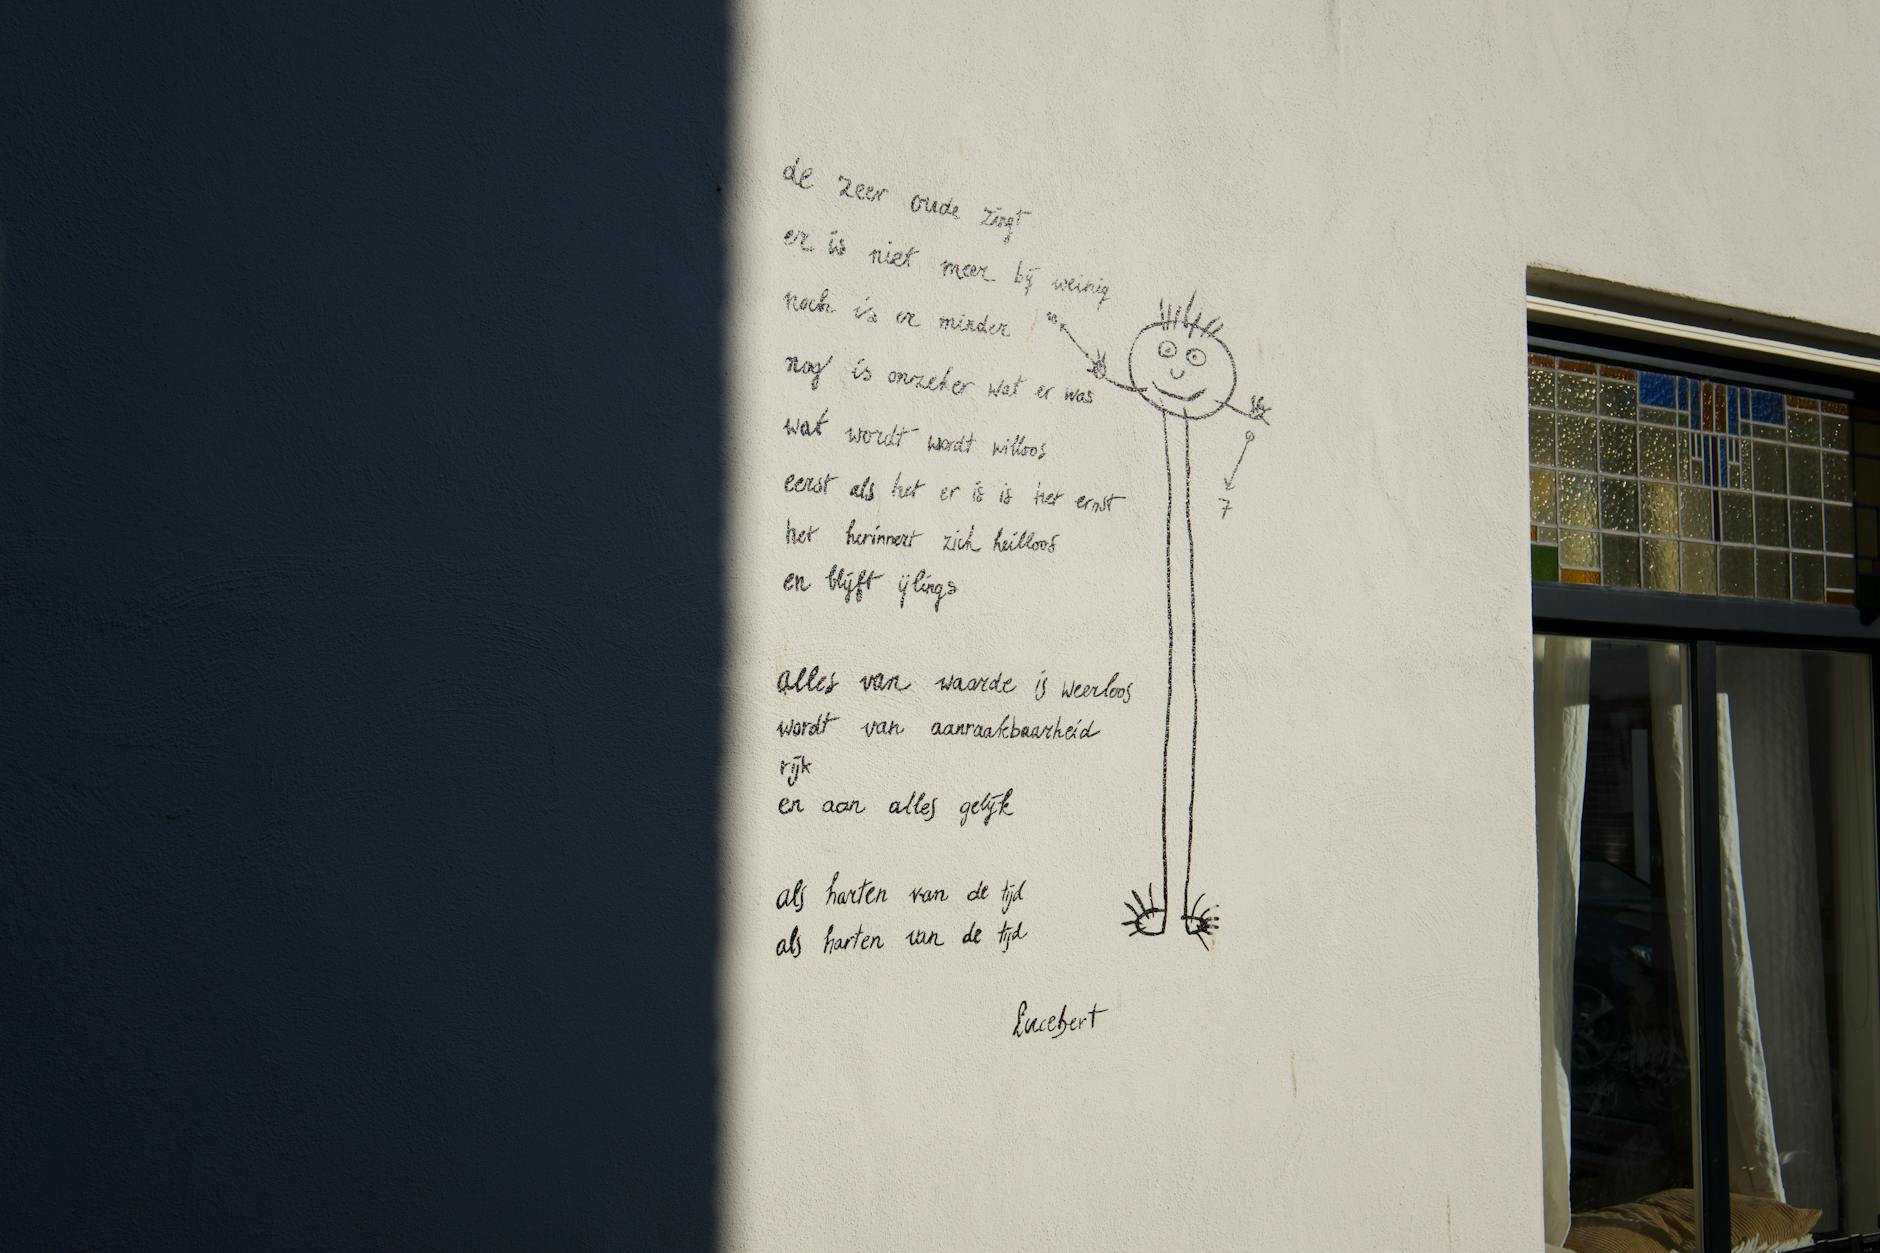 de zeer oude zingt
er is niet meer bij weinig
noch is er minder
nog is onzeker wat er was
wat wordt wordt willoos
eerst als het er is is het ernst
het herinnert zich heilloos
en blijft ijlings
alles van waarde is weerloos
wordt van aanraakbaarheid
rijk
en aan alles gelijk
als harten van de tijd
als harten van de tijd
Lucebert
7